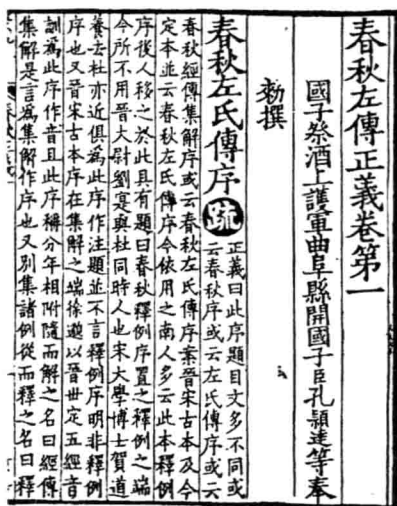 春秋左傳正義卷第一
國子祭酒上護軍曲阜縣開國子臣孔穎達等奉
勑撰
春秋左氏傳序
疏
正義曰此序題目文多不同或
云春秋序或云左氏傳序或云
春秋經傳集解序或云春秋左氏傳序案晉宋古本及今
定本並云春秋左氏傳序今依用之南人多云此本釋例
序後人移之於此且有題曰春秋釋例序置之釋例之端
今所不用晉大尉劉寔與杜同時人也宋大學博士賀道
養去杜亦近俱爲此序作注題並不言釋例序明非釋例
序也又晉宋古本序在集解之端徐邈以晉世定五經音
訓爲此序作音且此序稱分年相附隨而解之名曰經傳
集解是言爲集解作序也又別集諸例從而釋之名曰釋